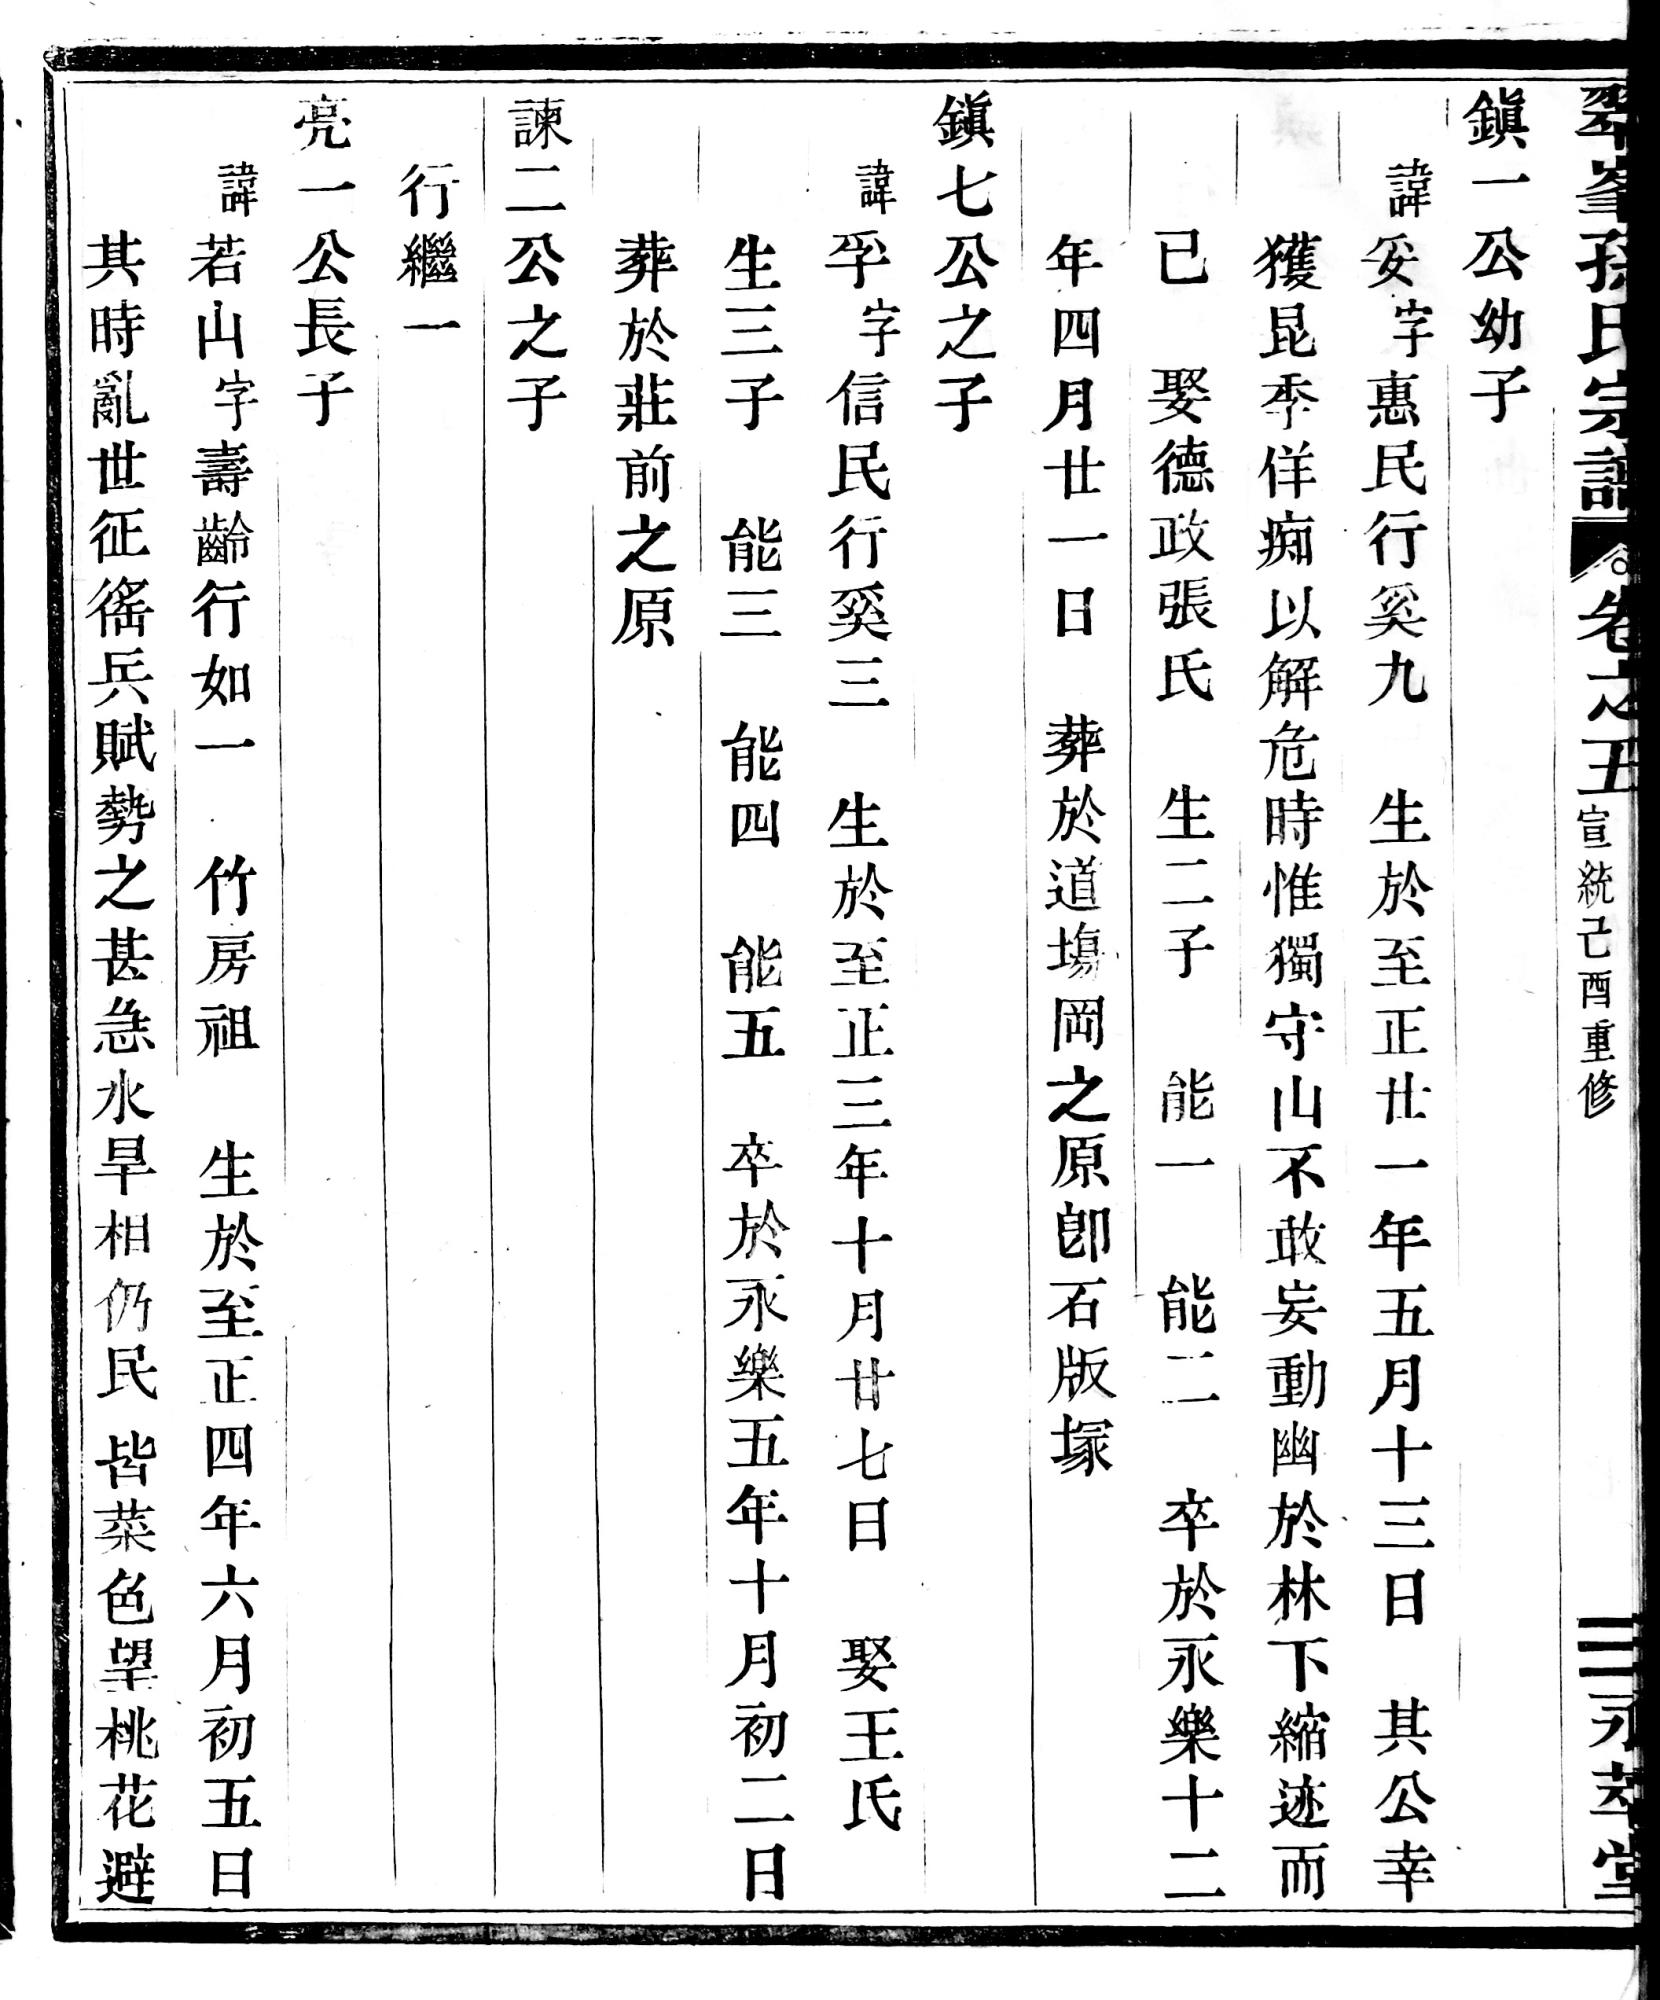 翠峯孫氏宗譜 卷之五 宣統己酉重修 三 永萃堂
鎭一公幼子
諱妥字惠民行奚九 生於至正廿一年五月十三日 其公幸
獲昆季佯痴以解危時惟獨守山不敢妄動幽於林下縮迹而
已 娶德政張氏 生二子 能一 能二 卒於永樂十二
年四月廿一日 葬於道塲岡之原卽石版塚
鎭七公之子
諱孚字信民行奚三 生於至正三年十月廿七日 娶王氏
生三子 能三 能四 能五 卒於永樂五年十月初二日
葬於莊前之原
諫二公之子
行繼一
亮一公長子
諱若山字壽齡行如一 竹房祖 生於至正四年六月初五日
其時亂世征徭兵賦勢之甚急水旱相仍民皆菜色望桃花避